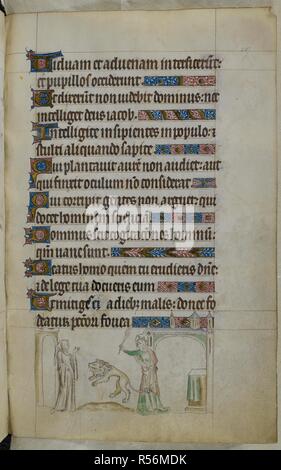 Viduam et advenam interfecerūt:
et pupillos occiderunt.
Et dixerūt non videbit dominus: nec
intelliget deus iacob.
Intelligite insipientes in populo: et
stulti aliquando sapite.
Qui plantavit aurē non audiet: aut
qui finxit oculum nō considerat.
Qui corripit gentes non arguet: qui
docet hominem
Dominus scit cogitaciones hominū:
qm̄ vane sunt.
Beatus homo quem tu erudieris dn̄e:
et de lege tua docueris eum.
a dieb; malis: donec fo
deatur peccatori fovea
alamy
Image ID: R56MDK
www.alamy.com